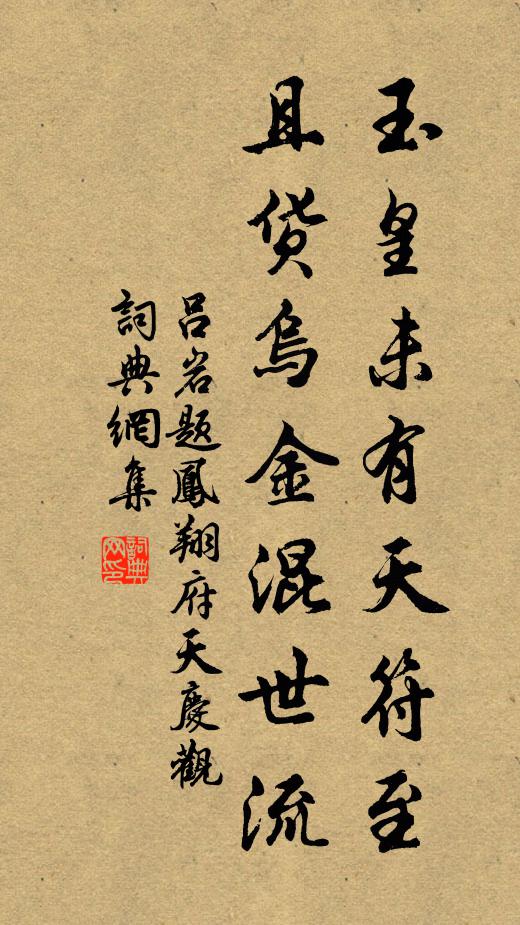 玉皇未有天符至
且貨烏金混世流
呂岩題鳳翔府天慶觀
詞典網集
詞典網印